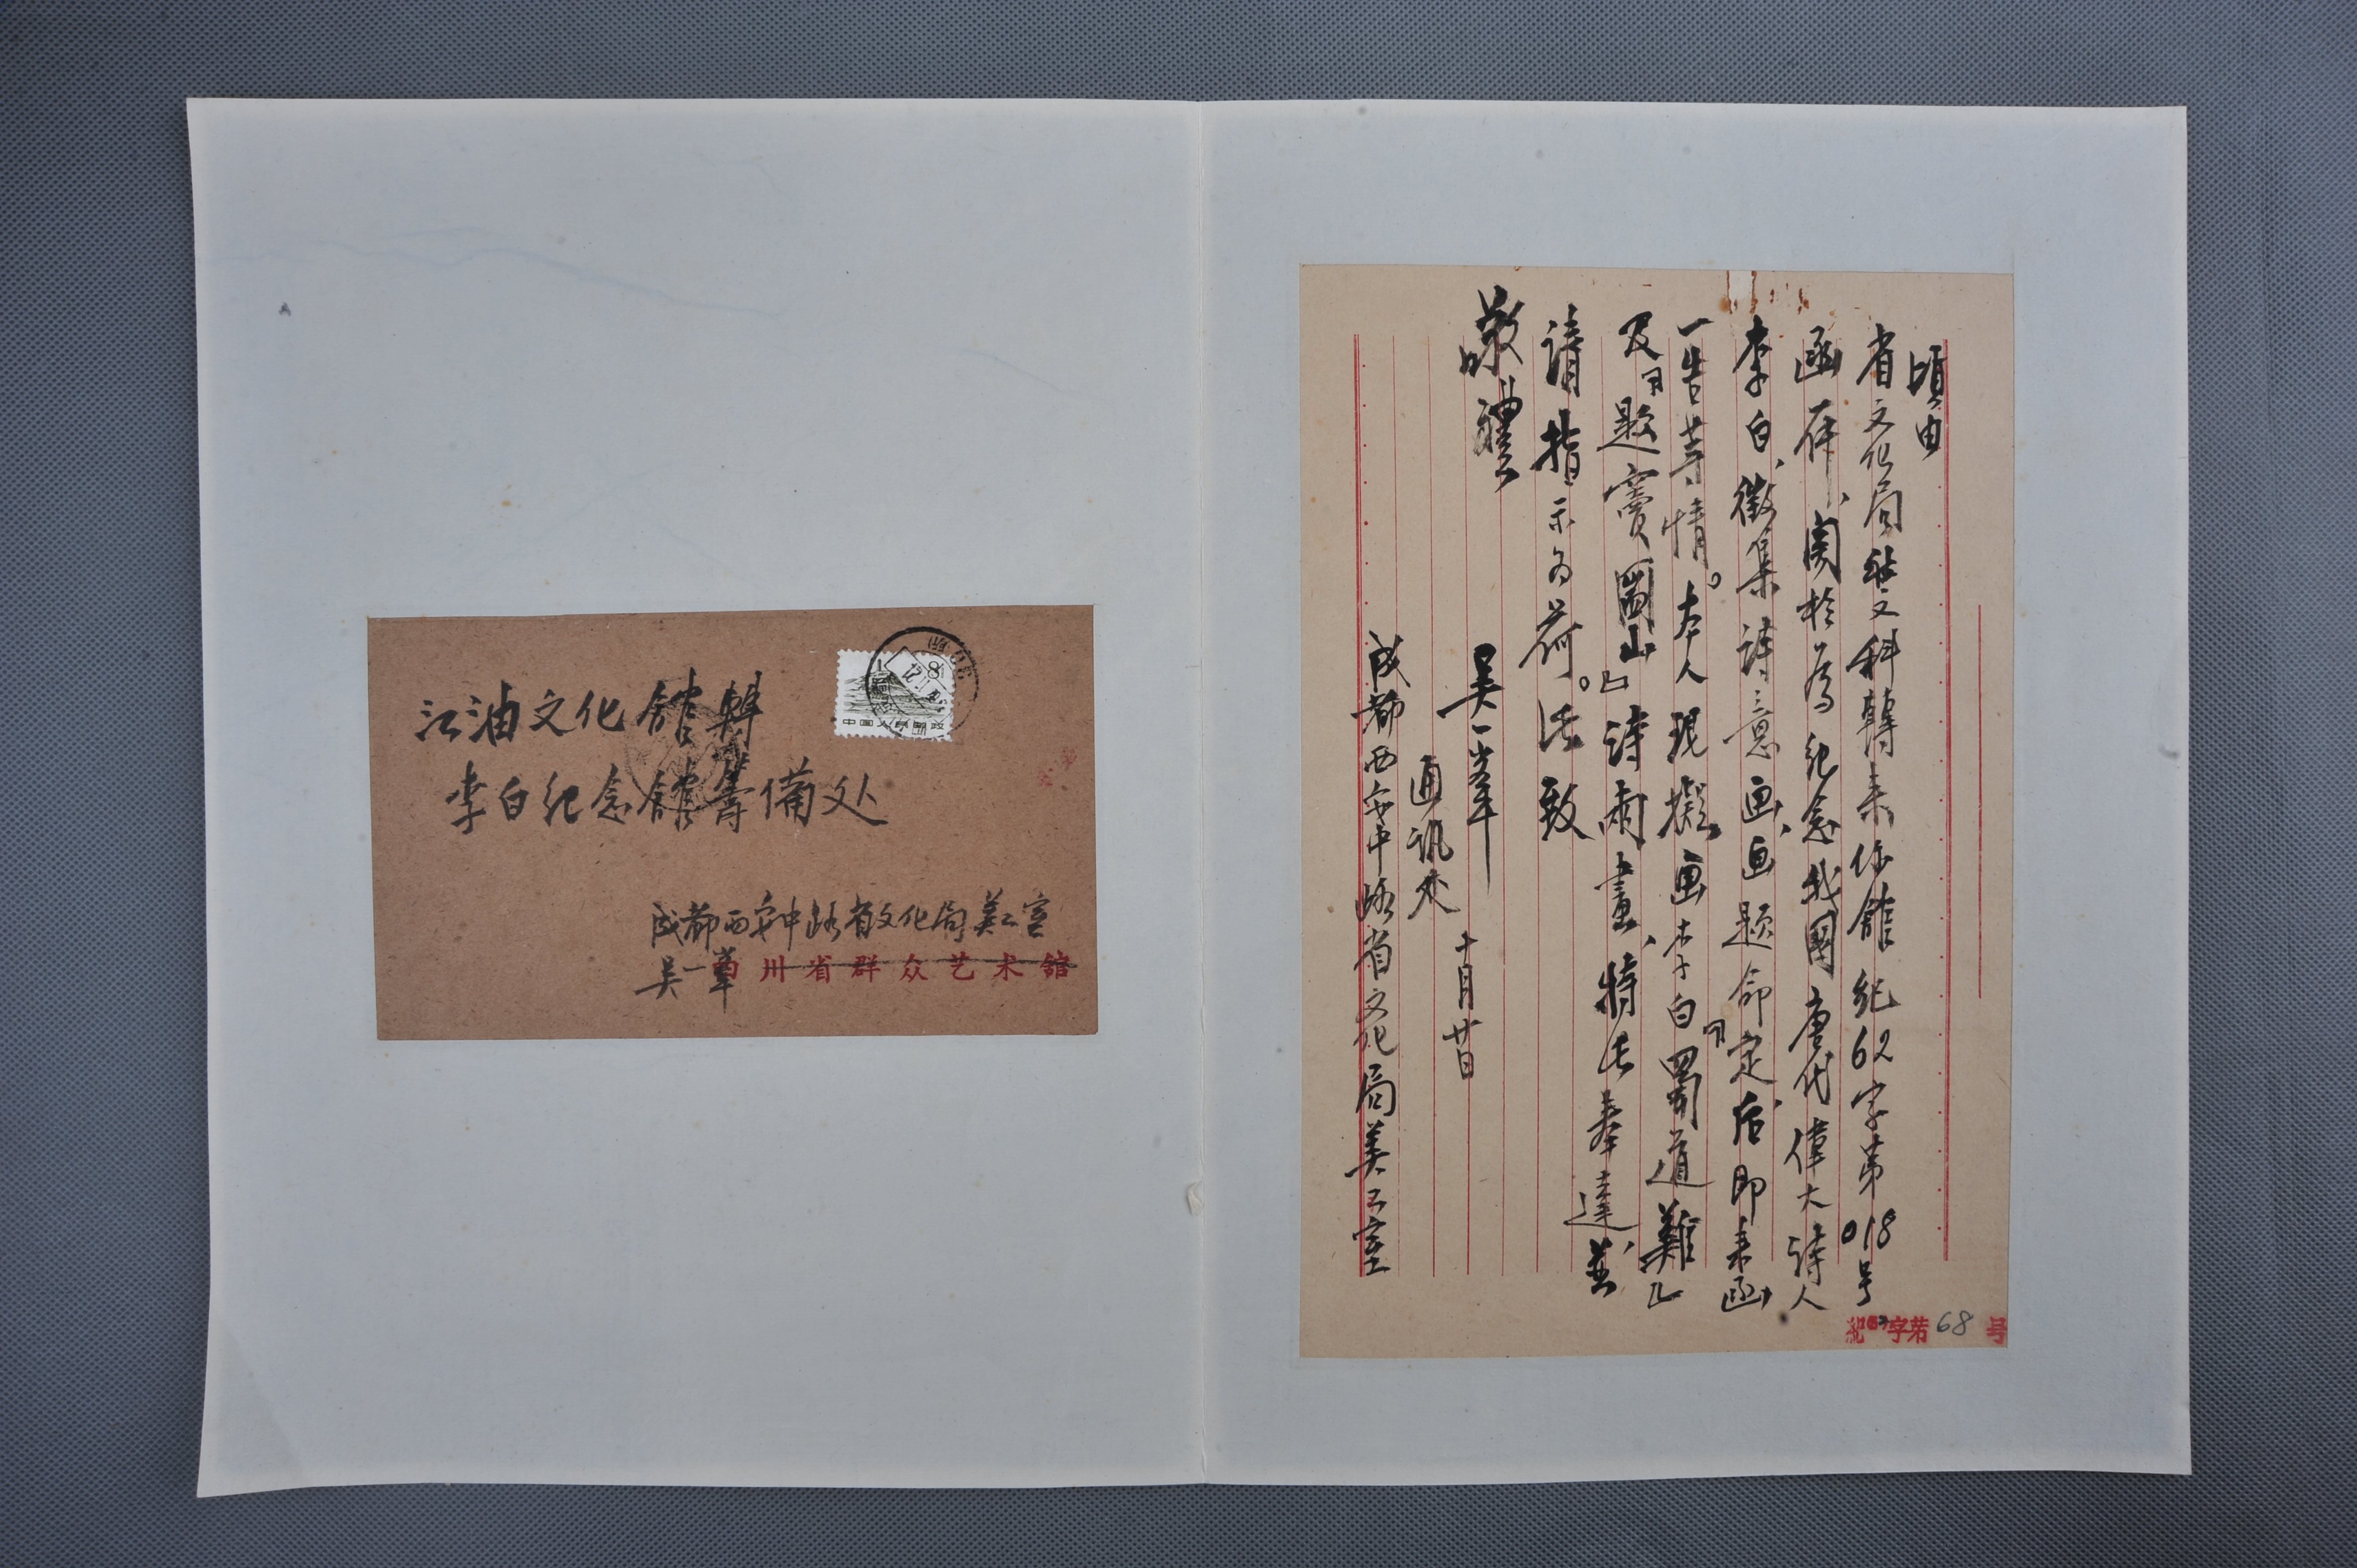 頃由
省文化局社文科轉来你館纪62字第018号
函一件、関於為纪念我國唐代偉大詩人
李白、徵集詩意画、画题命定后、即来函
一告等情。本人現擬画李白『蜀道難』
及『题竇圌山』詩兩畫、特此奉達、並
請指示为荷。此致
敬禮
吴一峯 十月廿日
通讯处
成都西安中路省文化局美工室
紀62字第68号
江油文化館轉
李白纪念館筹備处
成都西安中路省文化局美工室
吴一峯
四川省群众艺术館
8
中国人民邮政